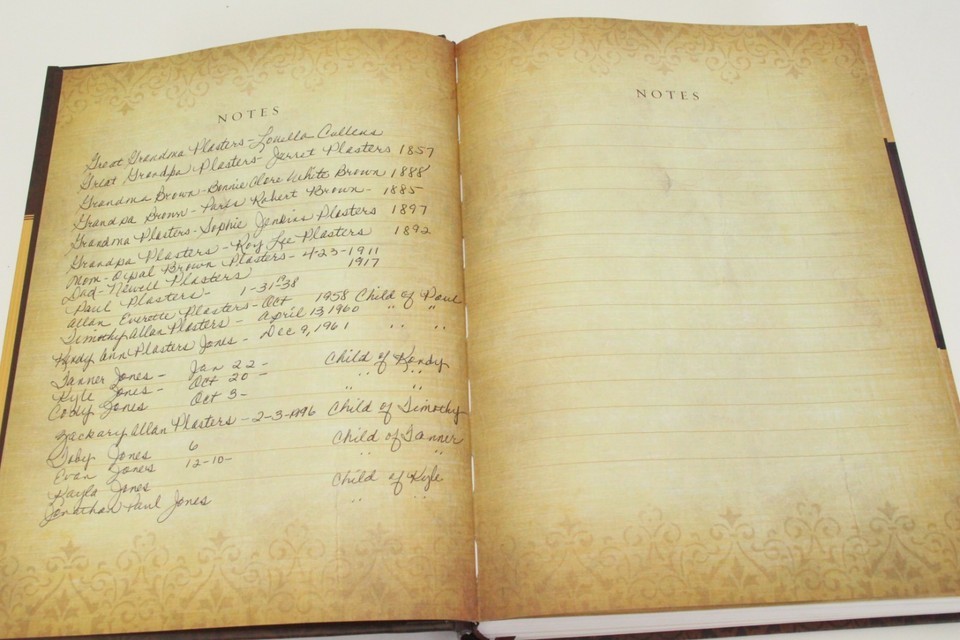 NOTES
Great Grandma Plasters - Louella Cullens
Great Grandpa Plasters - Jerret Plasters 1857
Grandma Brown - Bonnie Clore White Brown 1888
Grandpa Brown - Paris Robert Brown - 1885
Grandma Plasters - Sophie Jenkins Plasters 1897
Grandpa Plasters - Roy Lee Plasters 1892
Mom - Opal Brown Plasters - 4-23-1911
Dad - Newell Plasters 1917
Paul Plasters - 1-31-38
Allan Everette Plasters - Oct 1958 Child of Paul
Timothy Allan Plasters - April 13, 1960 " "
Kendy Ann Plasters Jones - Dec 9, 1961 " "
Tanner Jones - Jan 22 - Child of Kendy
Kyle Jones - Oct 20 - " "
Cody Jones Oct 3 - " "
Zackary Allan Plasters - 2-3-1996 Child of Timothy
Toby Jones 6 Child of Tanner
Evan Jones 12-10- " "
Kayla Jones Child of Kyle
Jonathan Paul Jones " "
NOTES